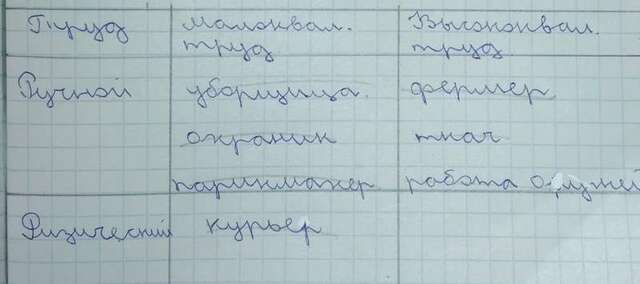 Труд Малоквал. Высококвал.
труд труд
Ручной уборщица. фермер
охраник ткач
парикмахер работа
Физический курьер